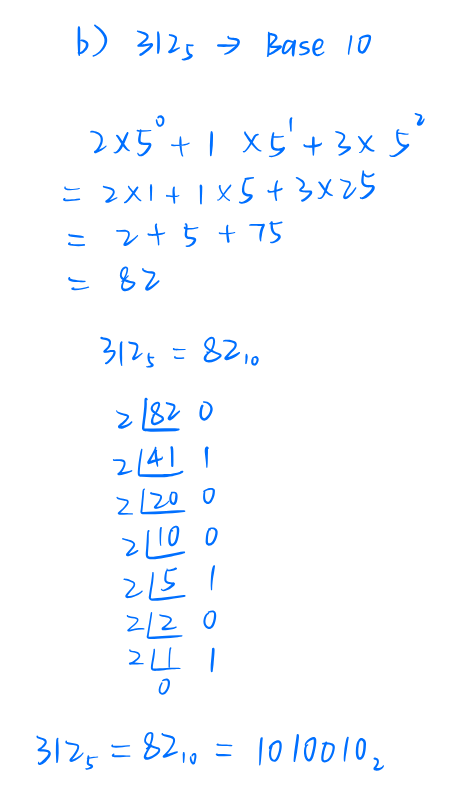 b) 312₅ → Base 10
2×5⁰ + 1 ×5¹ + 3× 5²
= 2×1 + 1×5 + 3×25
= 2 + 5 + 75
= 82
312₅ = 82₁₀
2 82 0
2 41 1
2 20 0
2 10 0
2 5 1
2 2 0
2 1 1
0
312₅ = 82₁₀ = 1010010₂